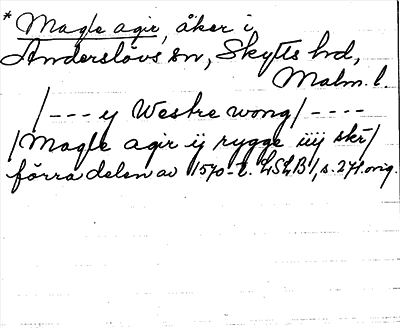 * Magle agir, åker i
Anderslövs sn, Skytts hd,
Malm. l.
/--- ij Westre wong/ ----
/Magle agir ij rygge iiij skr/
förra delen av 1570-t. LSLB 1, s. 271. orig.